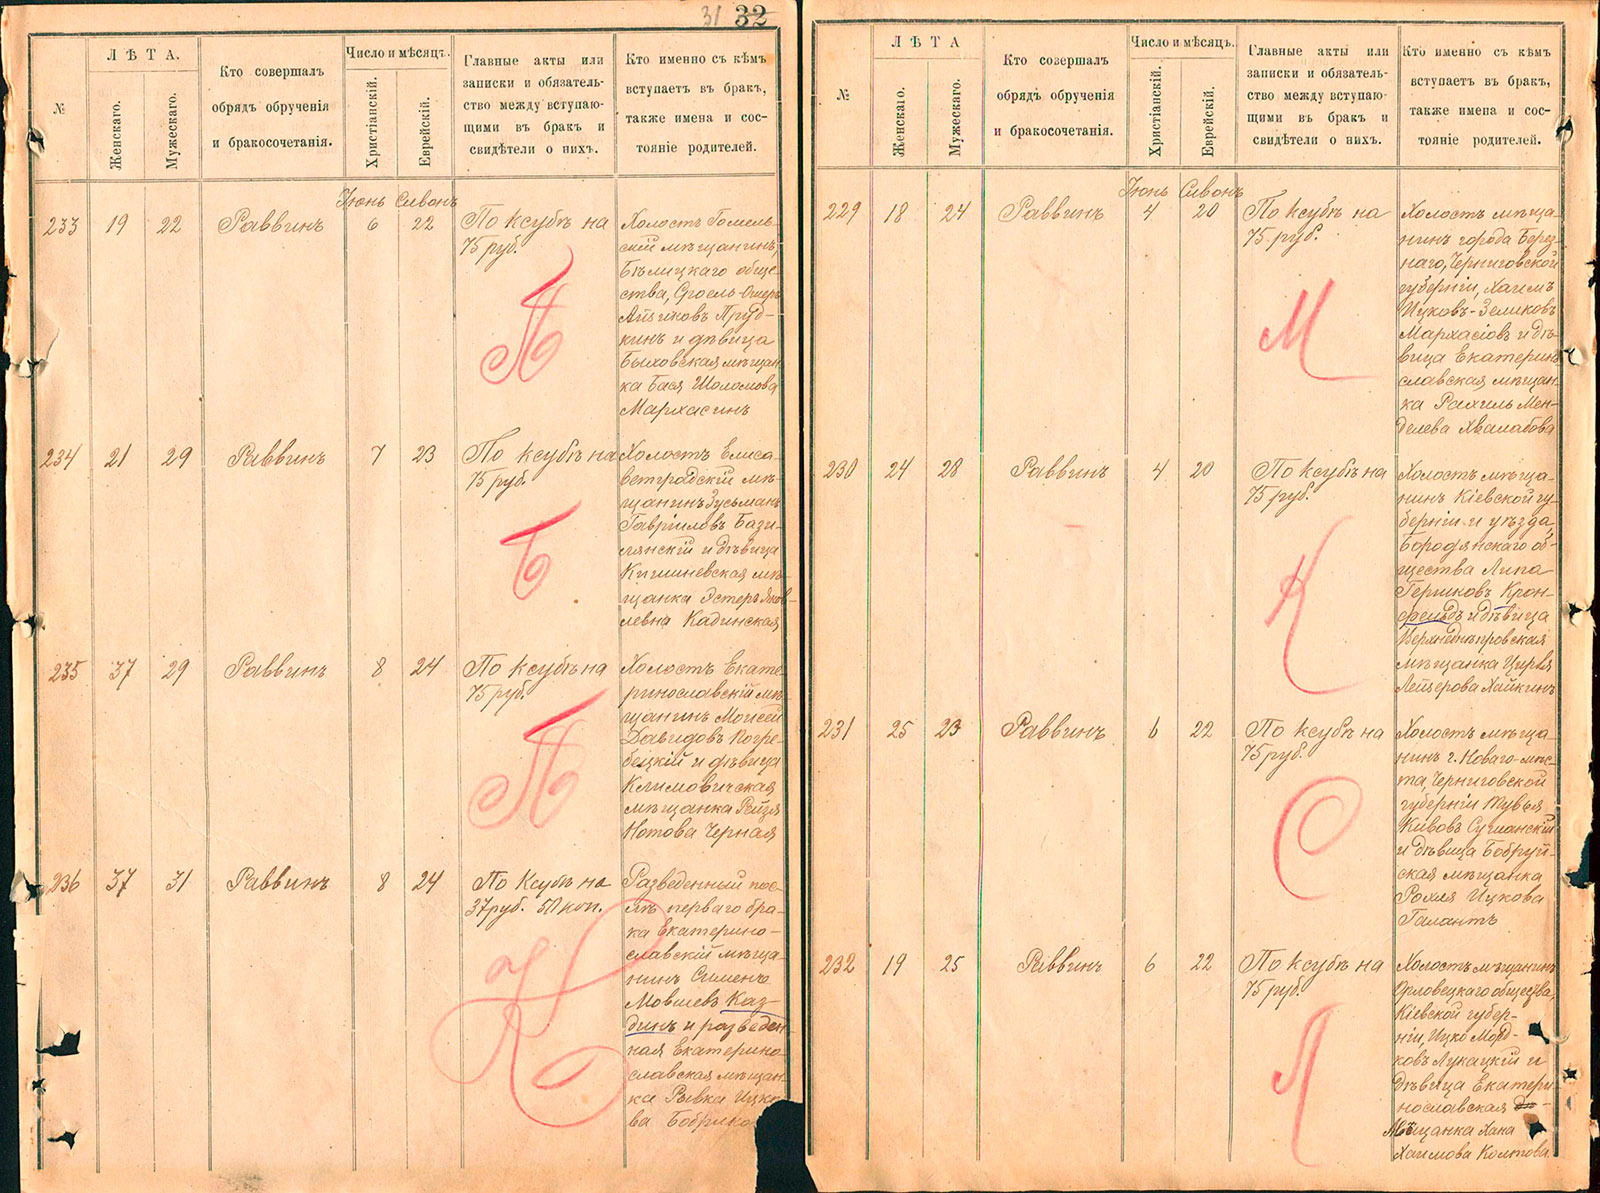 31 32
№
ЛѢТА.
Женскаго.
Мужескаго.
Кто совершалъ
обрядъ обрученія
и бракосочетанія.
Число и мѣсяцъ.
Христіанскій.
Еврейскій.
Главные акты или
записки и обязатель-
ство между вступаю-
щими въ бракъ и
свидѣтели о нихъ.
Кто именно съ кѣмъ
вступаетъ въ бракъ,
также имена и сос-
тояніе родителей.
Іюнь Сивонъ
233 19 22 Раввинъ 6 22
По Ксубѣ на
75 руб.
П
Холостъ Гомель-
скій мѣщанинъ,
Бѣлицкаго обще-
ства, Сроель-Ошеръ
Айзиковъ Пруд-
кинъ и дѣвица
Быховская мѣщан-
ка Бася Шоломова
Мархасинъ
234 21 29 Раввинъ 7 23
По Ксубѣ на
75 руб.
Б
Холостъ Елиса-
ветградскій мѣ-
щанинъ Зусьманъ
Гавріиловъ Бази-
лянскій и дѣвица
Кишиневская мѣ-
щанка Эстеръ Яков-
левна Кадинская
235 37 29 Раввинъ 8 24
По Ксубѣ на
75 руб.
П
Холостъ Екате-
ринославскій мѣ-
щанинъ Моисей
Давидовъ Погре-
бецкій и дѣвица
Климовичская
мѣщанка Рейзя
Нотова Черная
236 37 31 Раввинъ 8 24
По Ксубѣ на
37 руб. 50 коп.
К
Разведенный пос-
лѣ перваго бра-
ка Екатерино-
славскій мѣща-
нинъ Сименъ
Мовшевъ Каз-
динъ и разведен-
ная Екатерино-
славская мѣщан-
ка Рывка Ицко-
ва Бобрико
№
ЛѢТА
Женскаго.
Мужескаго.
Кто совершалъ
обрядъ обрученія
и бракосочетанія.
Число и мѣсяцъ.
Христіанскій.
Еврейскій.
Главные акты или
записки и обязатель-
ство между вступаю-
щими въ бракъ и
свидѣтели о нихъ.
Кто именно съ кѣмъ
вступаетъ въ бракъ,
также имена и сос-
тояніе родителей.
Іюнь Сивонъ
229 18 24 Раввинъ 4 20
По Ксубѣ на
75 руб.
М
Холостъ мѣща-
нинъ города Берез-
наго, Черниговской
губерніи, Хаимъ
Ицковъ-Зеликовъ
Мархасіовъ и дѣ-
вица Екатерино-
славская мѣщан-
ка Рахиль Мен-
делева Хвалабова
230 24 28 Раввинъ 4 20
По Ксубѣ на
75 руб.
К
Холостъ мѣща-
нинъ Кіевской гу-
берніи и уѣзда,
Бородянскаго об-
щества Липа
Гершковъ Крон-
фельдъ и дѣвица
Верхнеднѣпровская
мѣщанка Цирля
Лейзерова Хайкинъ
231 25 23 Раввинъ 6 22
По Ксубѣ на
75 руб.
С
Холостъ мѣща-
нинъ г. Новаго-мѣс-
та, Черниговской
губерніи Тувья
Кивовъ Сумянскій
и дѣвица Бобруй-
ская мѣщанка
Рохля Ицкова
Галантъ
232 19 25 Раввинъ 6 22
По Ксубѣ на
75 руб.
Л
Холостъ мѣщанинъ
Орловецкаго общества,
Кіевской губер-
ніи, Ицко Морд-
ковъ Лукацкій и
дѣвица Екатери-
нославская
мѣщанка Хана
Хаимова Колтова